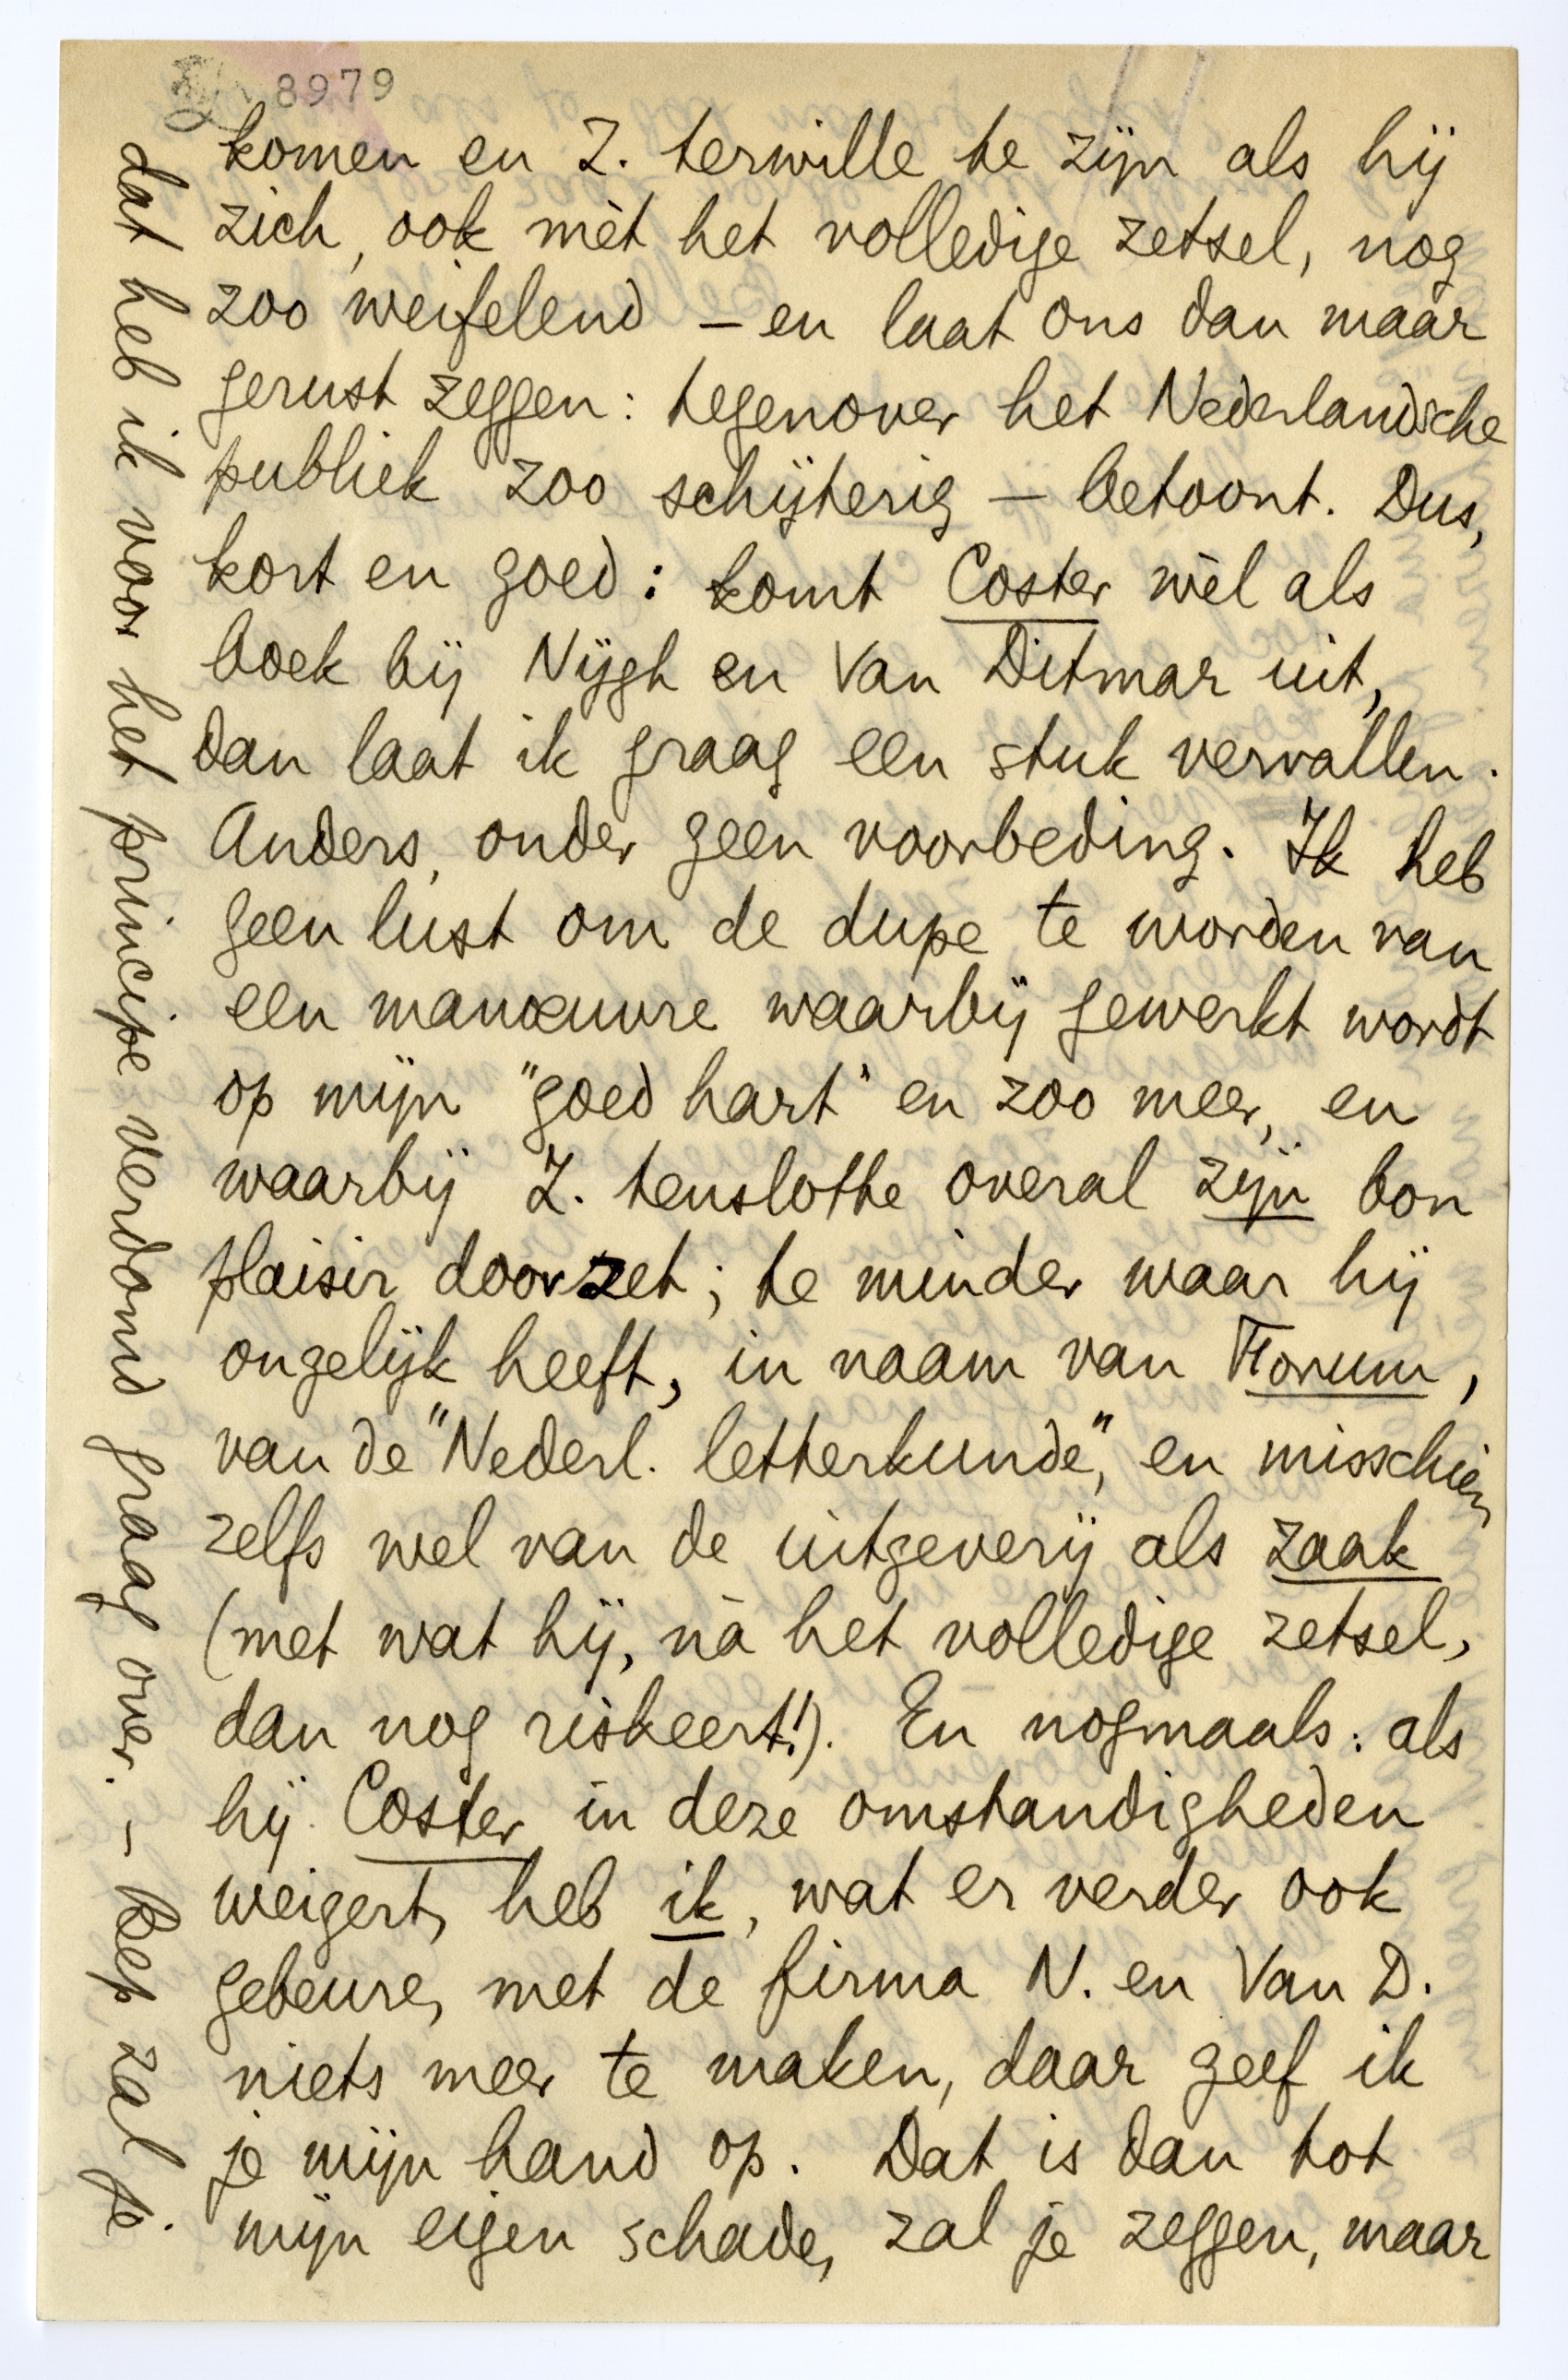 8979
komen en Z. terwille te zijn als hij
zich, ook mèt het volledige zetsel, nog
zoo weifelend – en laat ons dan maar
gerust zeggen: tegenover het Nederlandsche
publiek zoo schijterig – betoont. Dus,
kort en goed: komt Coster wèl als
boek bij Nijgh en Van Ditmar uit,
dan laat ik graag een stuk vervallen.
Anders, onder geen voorbeding. Ik heb
geen lust om de dupe te worden van
een manoeuvre waarbij gewerkt wordt
op mijn "goed hart" en zoo meer, en
waarbij Z. tenslotte overal zijn bon
plaisir doorzet; te minder waar hij
ongelijk heeft, in naam van Forum,
van de "Nederl. letterkunde", en misschien
zelfs wel van de uitgeverij als zaak
(met wat hij, nà het volledige zetsel,
dan nog riskeert!). En nogmaals: als
hij Coster in deze omstandigheden
weigert, heb ik, wat er verder ook
gebeure, met de firma N. en Van D.
niets meer te maken, daar geef ik
je mijn hand op. Dat is dan tot
mijn eigen schade, zal je zeggen, maar
dat heb ik voor het principe verdomd graag over. – Bep zal je